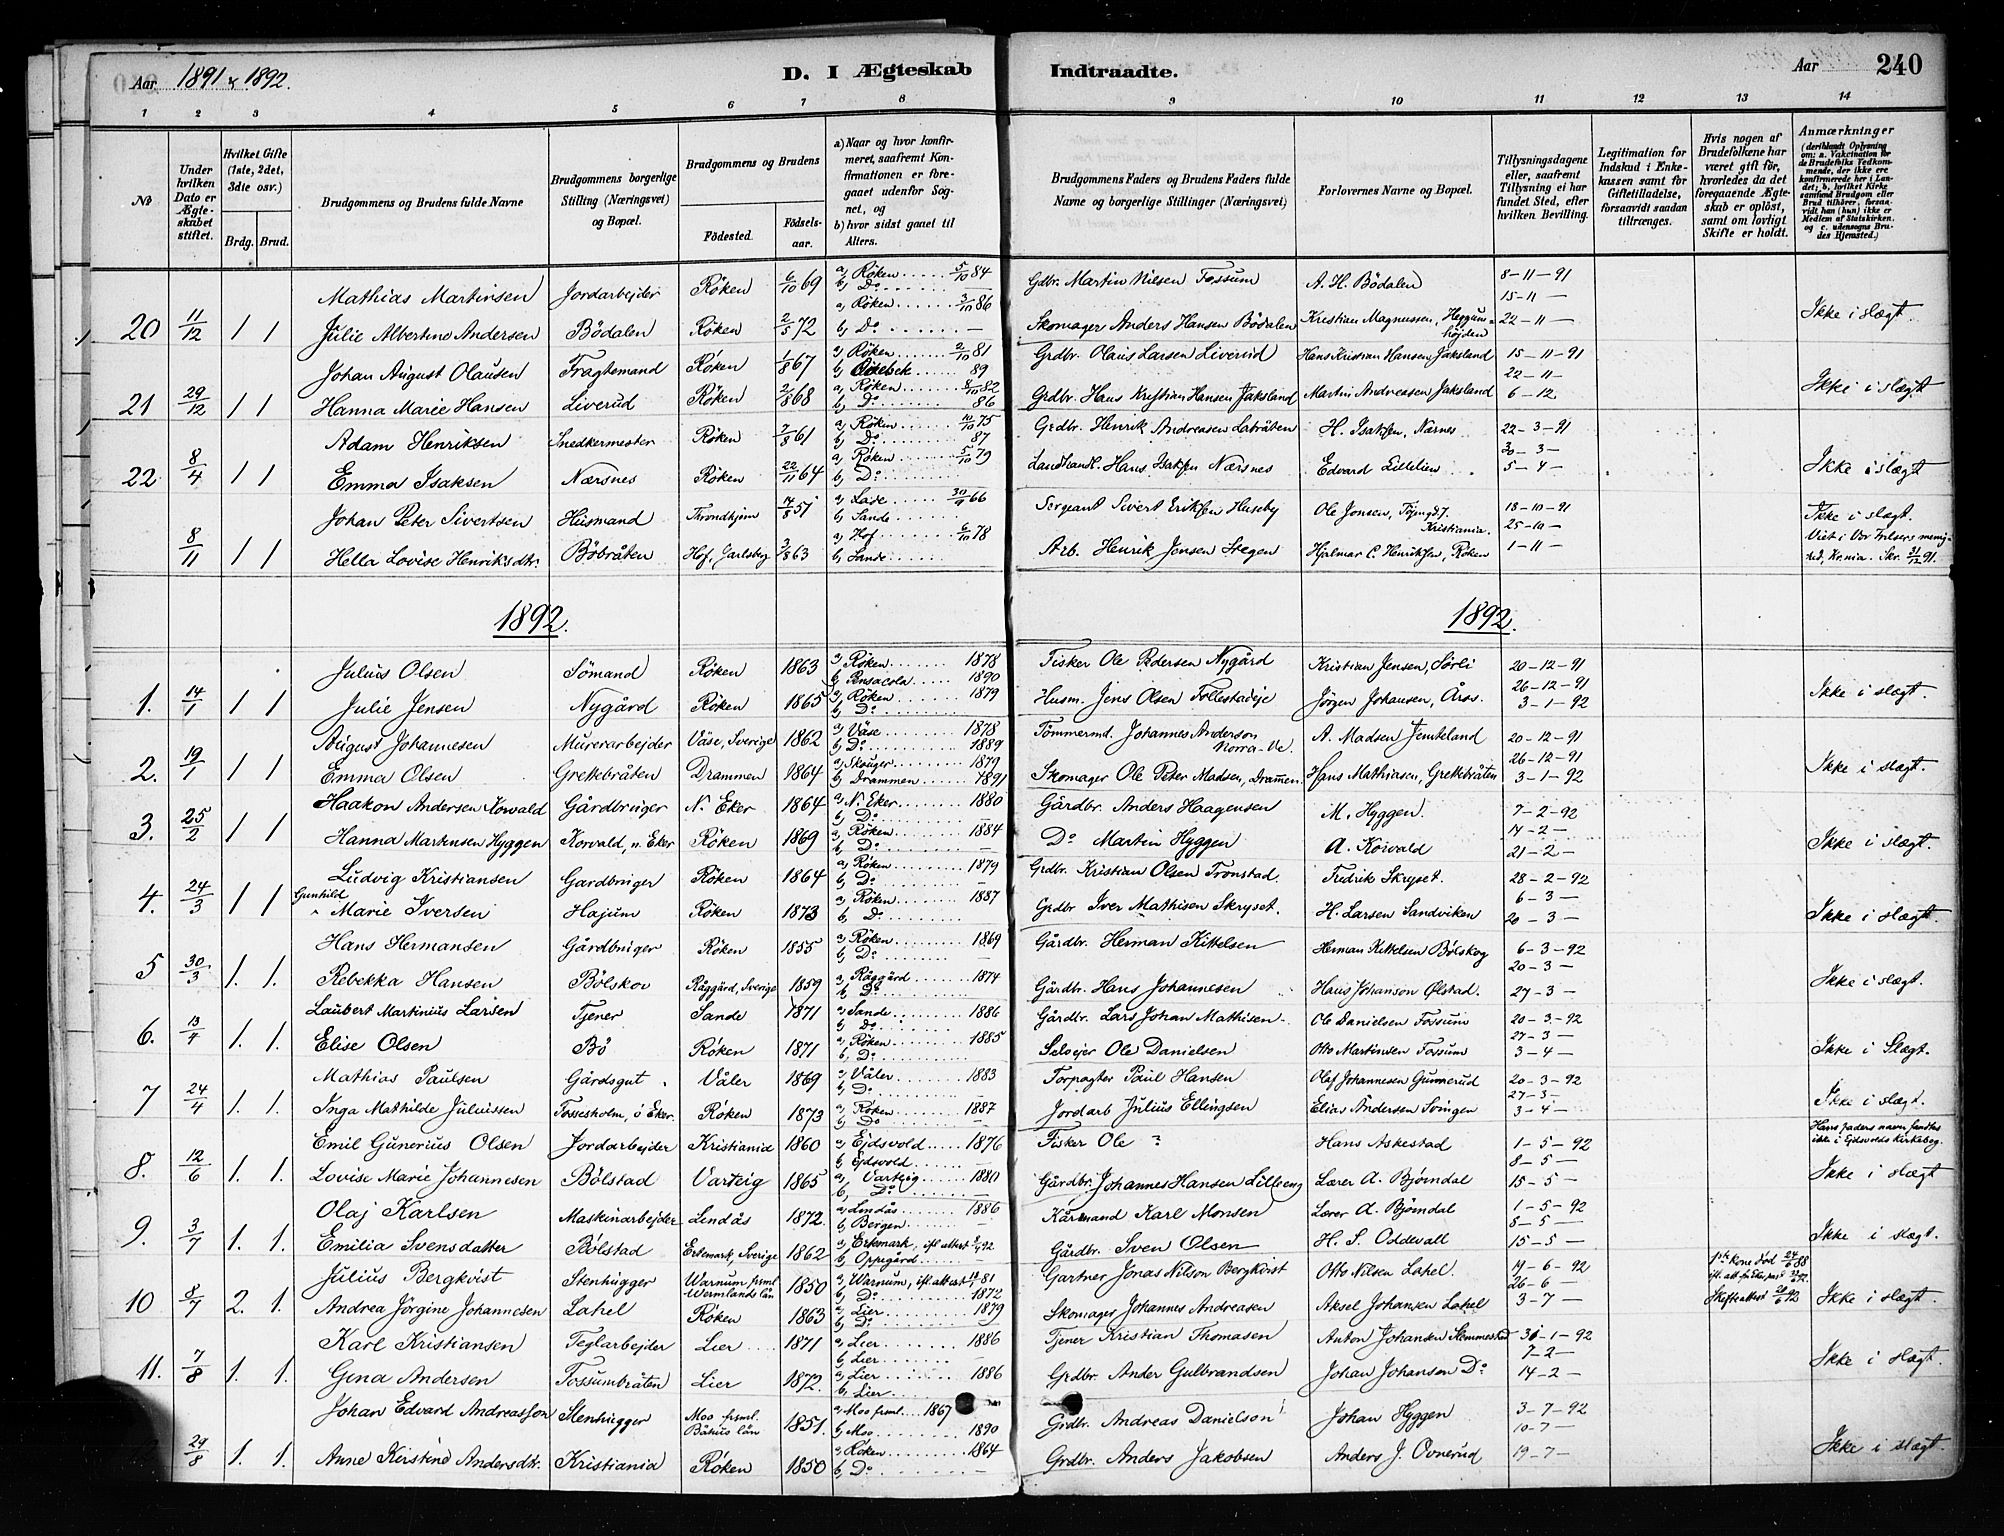 Aar 1891 & 1892.
D. I Ægteskab Indtraadte.
Aar 240
1 2 3 4 5 6 7 8 9 10 11 12 13 14
No
Under hvilken Dato er Ægteskabet stiftet.
Hvilket Gifte (1ste, 2det, 3die osv.)
Brdg. Brud.
Brudgommens og Brudens fulde Navne
Brudgommens borgerlige Stilling (Næringsvei) og Bopæl.
Brudgommens og Brudens
Födested. Födselsaar.
a) Naar og hvor konfirmeret, saafremt Konfirmationen er foregaaet udenfor Sognet, og
b) hvor sidst gaaet til Alters.
Brudgommens Faders og Brudens Faders fulde Navne og borgerlige Stillinger (Næringsvei)
Forlovernes Navne og Bopæl.
Tillysningsdagene eller, saafremt Tillysning ei har fundet Sted, efter hvilken Bevilling.
Legitimation for Indskud i Enkekassen samt for Giftetilladelse, forsaavidt saadan tiltrænges.
Hvis nogen af Brudefolkene har været gift för, hvorledes da det foregaaende Ægteskab er oplöst, samt om lovligt Skifte er holdt.
Anmærkninger (deriblandt Oplysning om: a. Vakcination for de Brudefolks Vedkommende, der ikke ere konfirmerede her i Landet; b. hvilket Kirkesamfund Brudgom eller Brud tilhörer, forsaavidt han (hun) ikke er Medlem af Statskirken, og c. udensogns Brudes Hjemsted.)
Mathias Martinsen Jordarbejder Röken 6/10 69 a, Röken 5/10 84 b, Do Gdbr. Martin Nilsen Fossum A. H. Bödalen 8-11-91
15-11-
20 11/12 1 1 Julie Albertine Andersen Bödalen Röken 2/5 72 a, Röken 3/10 86 b, Do - Skomager Anders Hansen Bödalen Kristian Magnussen, Heggumhöjden 22-11- Ikke i slægt.
Johan August Olausen Fragtemand Röken 1/8 67 a, Röken 2/10 81 89 Grdbr. Olaus Larsen Liverud Hans Kristian Hansen Jaksland 15-11-91
22-11-
21 29/12 1 1 Hanna Marie Hansen Liverud Röken 2/8 68 a, Röken 8/11 82 b, Do 86 Grdbr. Hans Kristian Hansen Jaksland Martin Andreasen Jaksland 6-12 Ikke i slægt.
Adam Henriksen Snedkermester Röken 7/8 61 a, Röken 10/10 75 b, Do 87 Grdbr. Henrik Andreasen Laträten H. Isaksen, Nærnes 22-3-91
30-3-
22 8/4 1 1 Emma Isaksen Nærsnes Röken 22/11 64 a, Röken 5/10 79 b, Do Landhandl. Hans Isaksen Nærsnes Edvard Lillelien 5-4- Ikke i slægt
Johan Peter Sivertsen Husmand Throndhjem 51 a, Lade 66 b, Sande Sergeant Sivert Eriksen Huseby Ole Jonsen, Kristiania. 18-10-91
25-10- Ikke i slægt.
8/11 1 1 Hella Lovise Henriksdtr. Böbråten Hof, Jarlsberg 3/8 63 a, Hof 6/10 78 b, Sande Arb. Henrik Jensen Stegen Hjalmar C. Henriksen, Röken 1-11- Viet i Vor Frelsers menighed, Kr.nia. Skr. 31/12 91.
1892. 1892.
Julius Olsen Sömand Röken 1863 a, Röken 1878 b, Pensacola 1890 Fisker Ole Pedersen Nygård Kristian Jensen, Sörli 20-12-91
26-12-91
1. 14/1 1 1 Julie Jensen Nygård Röken 1865 a, Röken 1879 b, Do Husm. Jens Olsen Follestadeje Jörgen Johansen, Åros. 3-1-92 Ikke i slægt.
August Johannesen Murerarbejder Väse, Sverige 1862 a, Väse 1878 b, Do 1889 Tömmermd. Johannes Anderson Norra-Ve. A. Madsen Jemteland 20-12-91
26-12-91
2. 19/1 1 1 Emma Olsen Grettebråten Drammen 1864 a, Skouger 1879 b, Drammen 1891 Skomager Ole Peter Madsen, Drammen. Hans Mathiasen, Grettebråten 3-1-92 Ikke i slægt.
Haakon Andersen Korvald Gårdbruger N. Eker 1864 a, N. Eker 1880 b, Do Gårdbr. Anders Haagensen M. Hyggen. 7-2-92
14-2-
3. 25/2 1 1 Hanna Martinsen Hyggen Korvald, n. Eker Röken 1869 a, Röken 1884 b, Do - Do Martin Hyggen A. Korvald 21-2- Ikke i slægt.
Ludvig Kristiansen Gardbruger Röken 1864 a, Röken 1879 b, Do - Grdbr. Kristian Olsen Tronstad. Fredrik Skryset. 28-2-92
6-3-
4. 24/3 1 1 Gunhild Marie Iversen Hajum Röken 1873 a, Röken 1887 b, Do Grdbr Iver Mathisen Skryset. H. Larsen Sandviken 20-3- Ikke i slægt.
Hans Hermansen Gårdbruger Röken 1855 a, Röken 1869 b, Do - Gårdbr. Herman Kittelsen Herman Kittelsen Bölskog 6-3-92
20-3-
5 30/3 1. 1. Rebekka Hansen Bölskov Råggård, Sverige 1859 a, Råggård 1874 b, Do Gårdbr. Hans Johannesen Hans Johanson Ölstad. 27-3- Ikke i slægt.
Laubert Martinius Larsen Tjener Sande 1871 a, Sande 1886 b, Do Gårdbr. Lars Johan Mathisen Ole Danielsen Fossum 20-3-92
27-3-
6. 13/4 1. 1. Elise Olsen Bö Röken 1871 a, Röken 1885 b, Do Selvejer Ole Danielsen Otto Martinsen Fossum 3-4- Ikke i Slægt.
Mathias Paulsen Gårdsgut Våler 1869 a, Våler 1883 b, Do Forpagter Paul Hansen Olaf Johannesen Gunnerud 20-3-92
27-3-
7 24/4 1. 1. Inga Mathilde Juliussen Fossesholm, ö Eker. Röken 1873 a, Röken 1887 b, Do - Jordarb Julius Ellingsen Elias Andersen Svingen 3-4- Ikke i slægt.
Emil Gunerius Olsen Jordarbejder Kristiania 1860 a, Ejdsvold 1876 b, Ejdsvold - Fisker Ole ? Hans Askestad 1-5-92 Hans faders navn fandtes ikke i Ejdsvolds Kirkebog.
8-5-
8. 12/6 1. 1. Lovise Marie Johannesen Bölstad Varteig 1865 a, Varteig 1880 b, Do - Gårdbr. Johannes Hansen Lilleeng Lærer A. Björndal 15-5- Ikke i slægt
Olaj Karlsen Maskinarbejder Lindås 1872. a, Lindås 1886 b, Bergen Kårmand Karl Monsen Lærer A. Björndal 1-5-92
8-5-
9. 3/7 1. 1. Emilia Svensdatter Bölstad Erkemark, Sverige 1862 a, Erkemark, ifl. attest 92 b, Oppegård Gårdbr. Sven Olsen H. S. Oddevall 15-5- Ikke i slægt.
Julius Bergkvist Stenhugger Warnum frsml. Wermlands län 1850 a, Warnum, ifl. attest 81 b, Do 1872 Gartner Jonas Nilson Bergkvist Otto Nilsen Lahel. 19-6-92 1ste kone död 24/6 88
26-6-
10 8/7 2. 1. Andrea Jörgine Johannesen Lahel Röken 1863 a, Lier 1879 b, Do Skomager Johannes Andreasen Aksel Johansen Lahel 3-7- Skifteattest 92 Ikke i slægt.
Karl Kristiansen Teglarbejder Lier 1871 a, Lier 1886 b, Lier Tjener Kristian Thomasen Anton Johansen Slemmestad 31-1-92
7-2-
11. 7/8 1. 1. Gina Andersen Fossumbråten Lier 1872. a, Lier 1886 b, Lier Grdbr. Ander Gulbrandsen Johan Johansen Do 14-2 Ikke i slægt.
Johan Edvard Andreasson Stenhugger Moo frsml. Båhus län 1851. a, Moo frsml. 1867 b, Moo 1890 Grdbr. Andreas Danielson Johan Hyggen 3-7-92
10-7-
29/8 1. 1. Anne Kirstine Andersdtr. Kristiania Röken 1850 a, Röken 1864 b, Do - Grdbr. Anders Jakobsen Anders J. Ovnerud 19-7- Ikke i slægt.